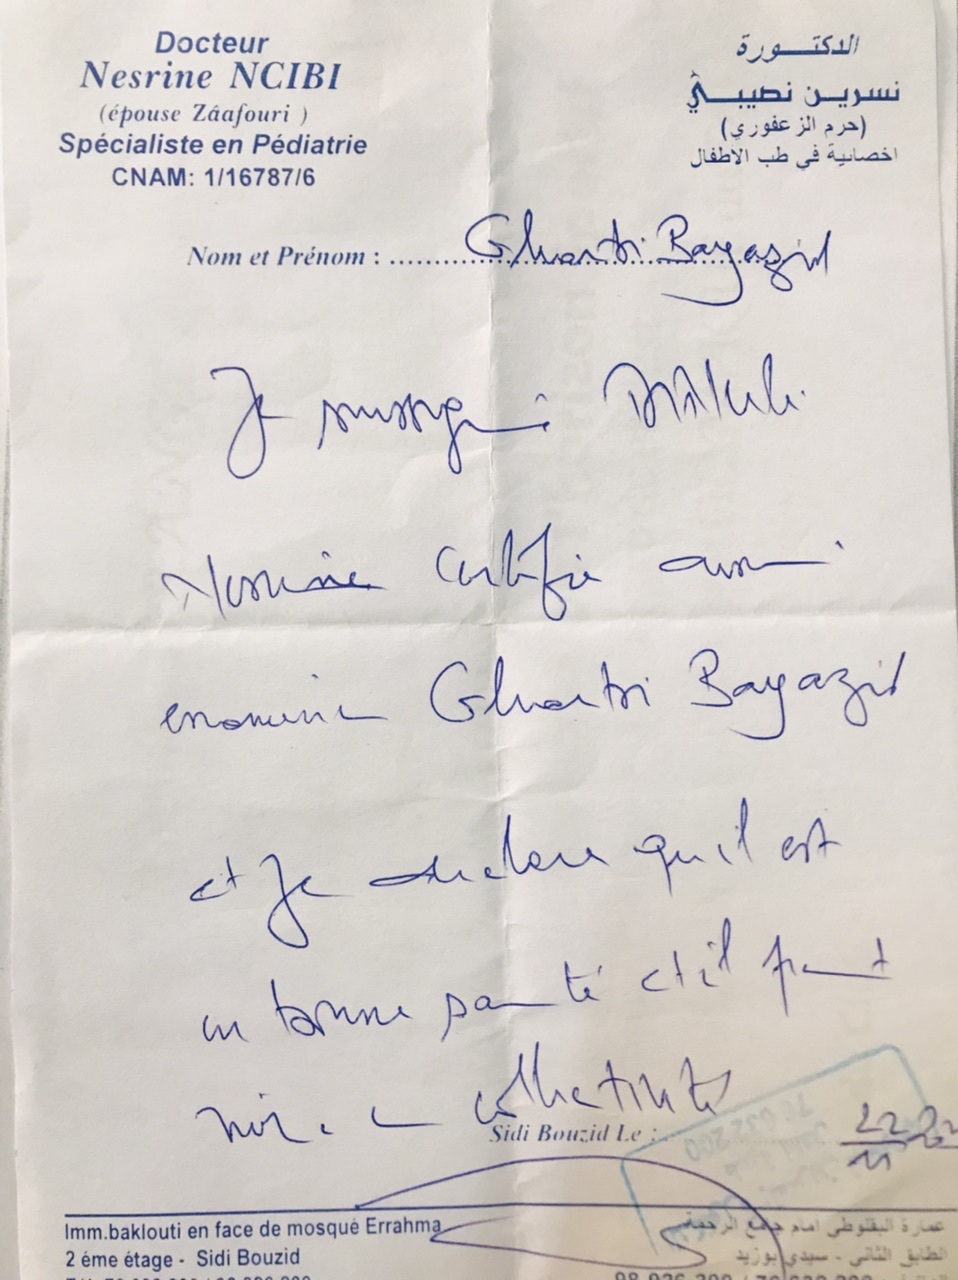 Docteur
Nesrine NCIBI
(épouse Zâafouri )
Spécialiste en Pédiatrie
CNAM: 1/16787/6
الدكتـــورة
نسرين نصيبـي
(حرم الزعفوري)
اخصائية في طب الاطفال
Nom et Prénom : Gharbi Bayazid
Je soussigné
Nesrine certifie avoir
examiné Gharbi Bayazid
et Je déclare qu'il est
en bonne santé et il peut
vivre en collectivité
Sidi Bouzid Le : 22
11
Imm.baklouti en face de mosqué Errahma
2 éme étage - Sidi Bouzid
عمارة البقلوطي امام جامع الرحمة
الطابق الثاني - سيدي بوزيد